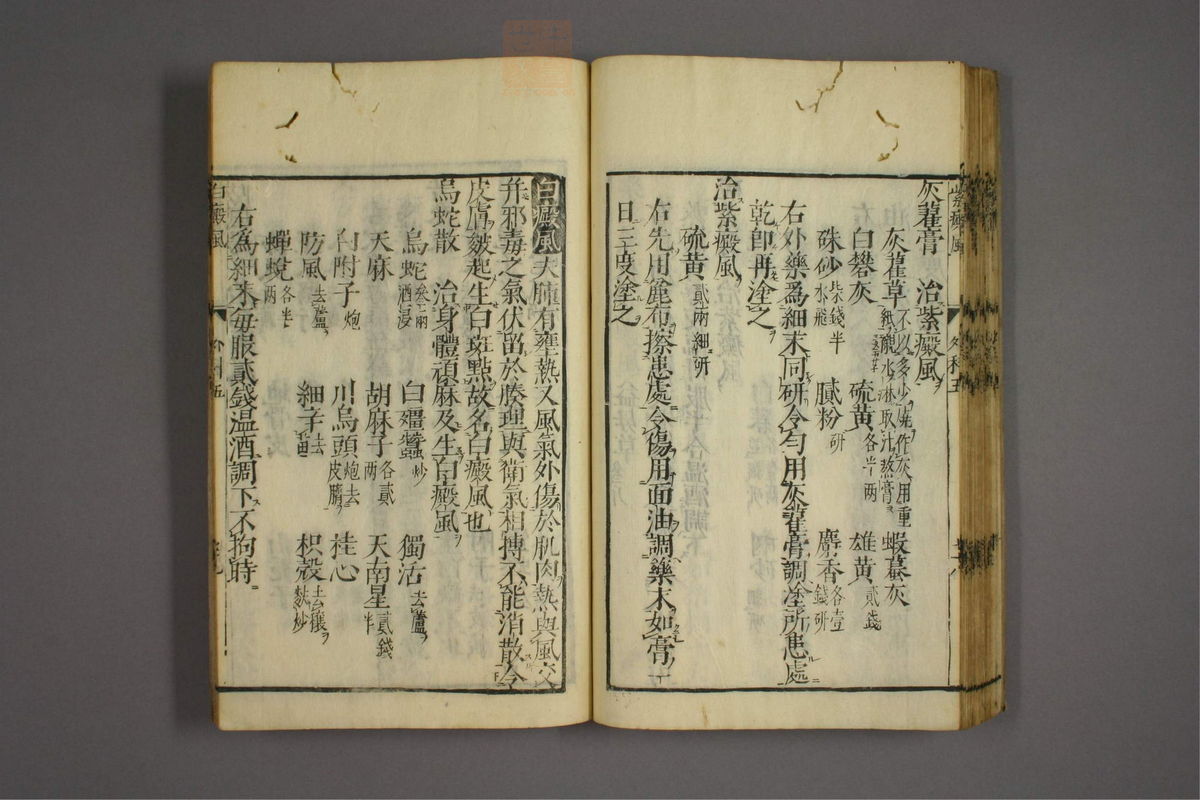 紫癜風 外科五
灰藋膏 治紫癜風
灰藋草不以多少燒作灰用重紙䑓水淋取汁熬膏 蝦蟇灰
白礬灰 硫黄各半两 雄黄貳錢
硃砂柒錢半水飛 膩粉研 麝香各壹錢研
右外藥爲細末同研令勻用灰藋膏調塗所患處
乾即再塗之
治紫癜風
硫黄貳兩細研
右先用麄布擦患處令傷用面油調藥末如膏一
日三度塗之
白癜風夫臟有壅熱又風氣外傷於肌肉熱與風交
并邪毒之氣伏留於腠理與衛氣相搏不能消散令
皮膚皴起生白斑點故名白癜風也
烏蛇散 治身體頑麻及生白癜風
烏蛇叁兩酒浸 白殭蠶炒 獨活去蘆
天麻 胡麻子各貳两 天南星貳錢半
白附子炮 川烏頭炮去皮臍 桂心
防風去蘆 細辛去苗 枳殼去穰麩炒
蟬蛻各半两
右為細末毎服貳錢温酒調下不拘時
白癜風 外科五